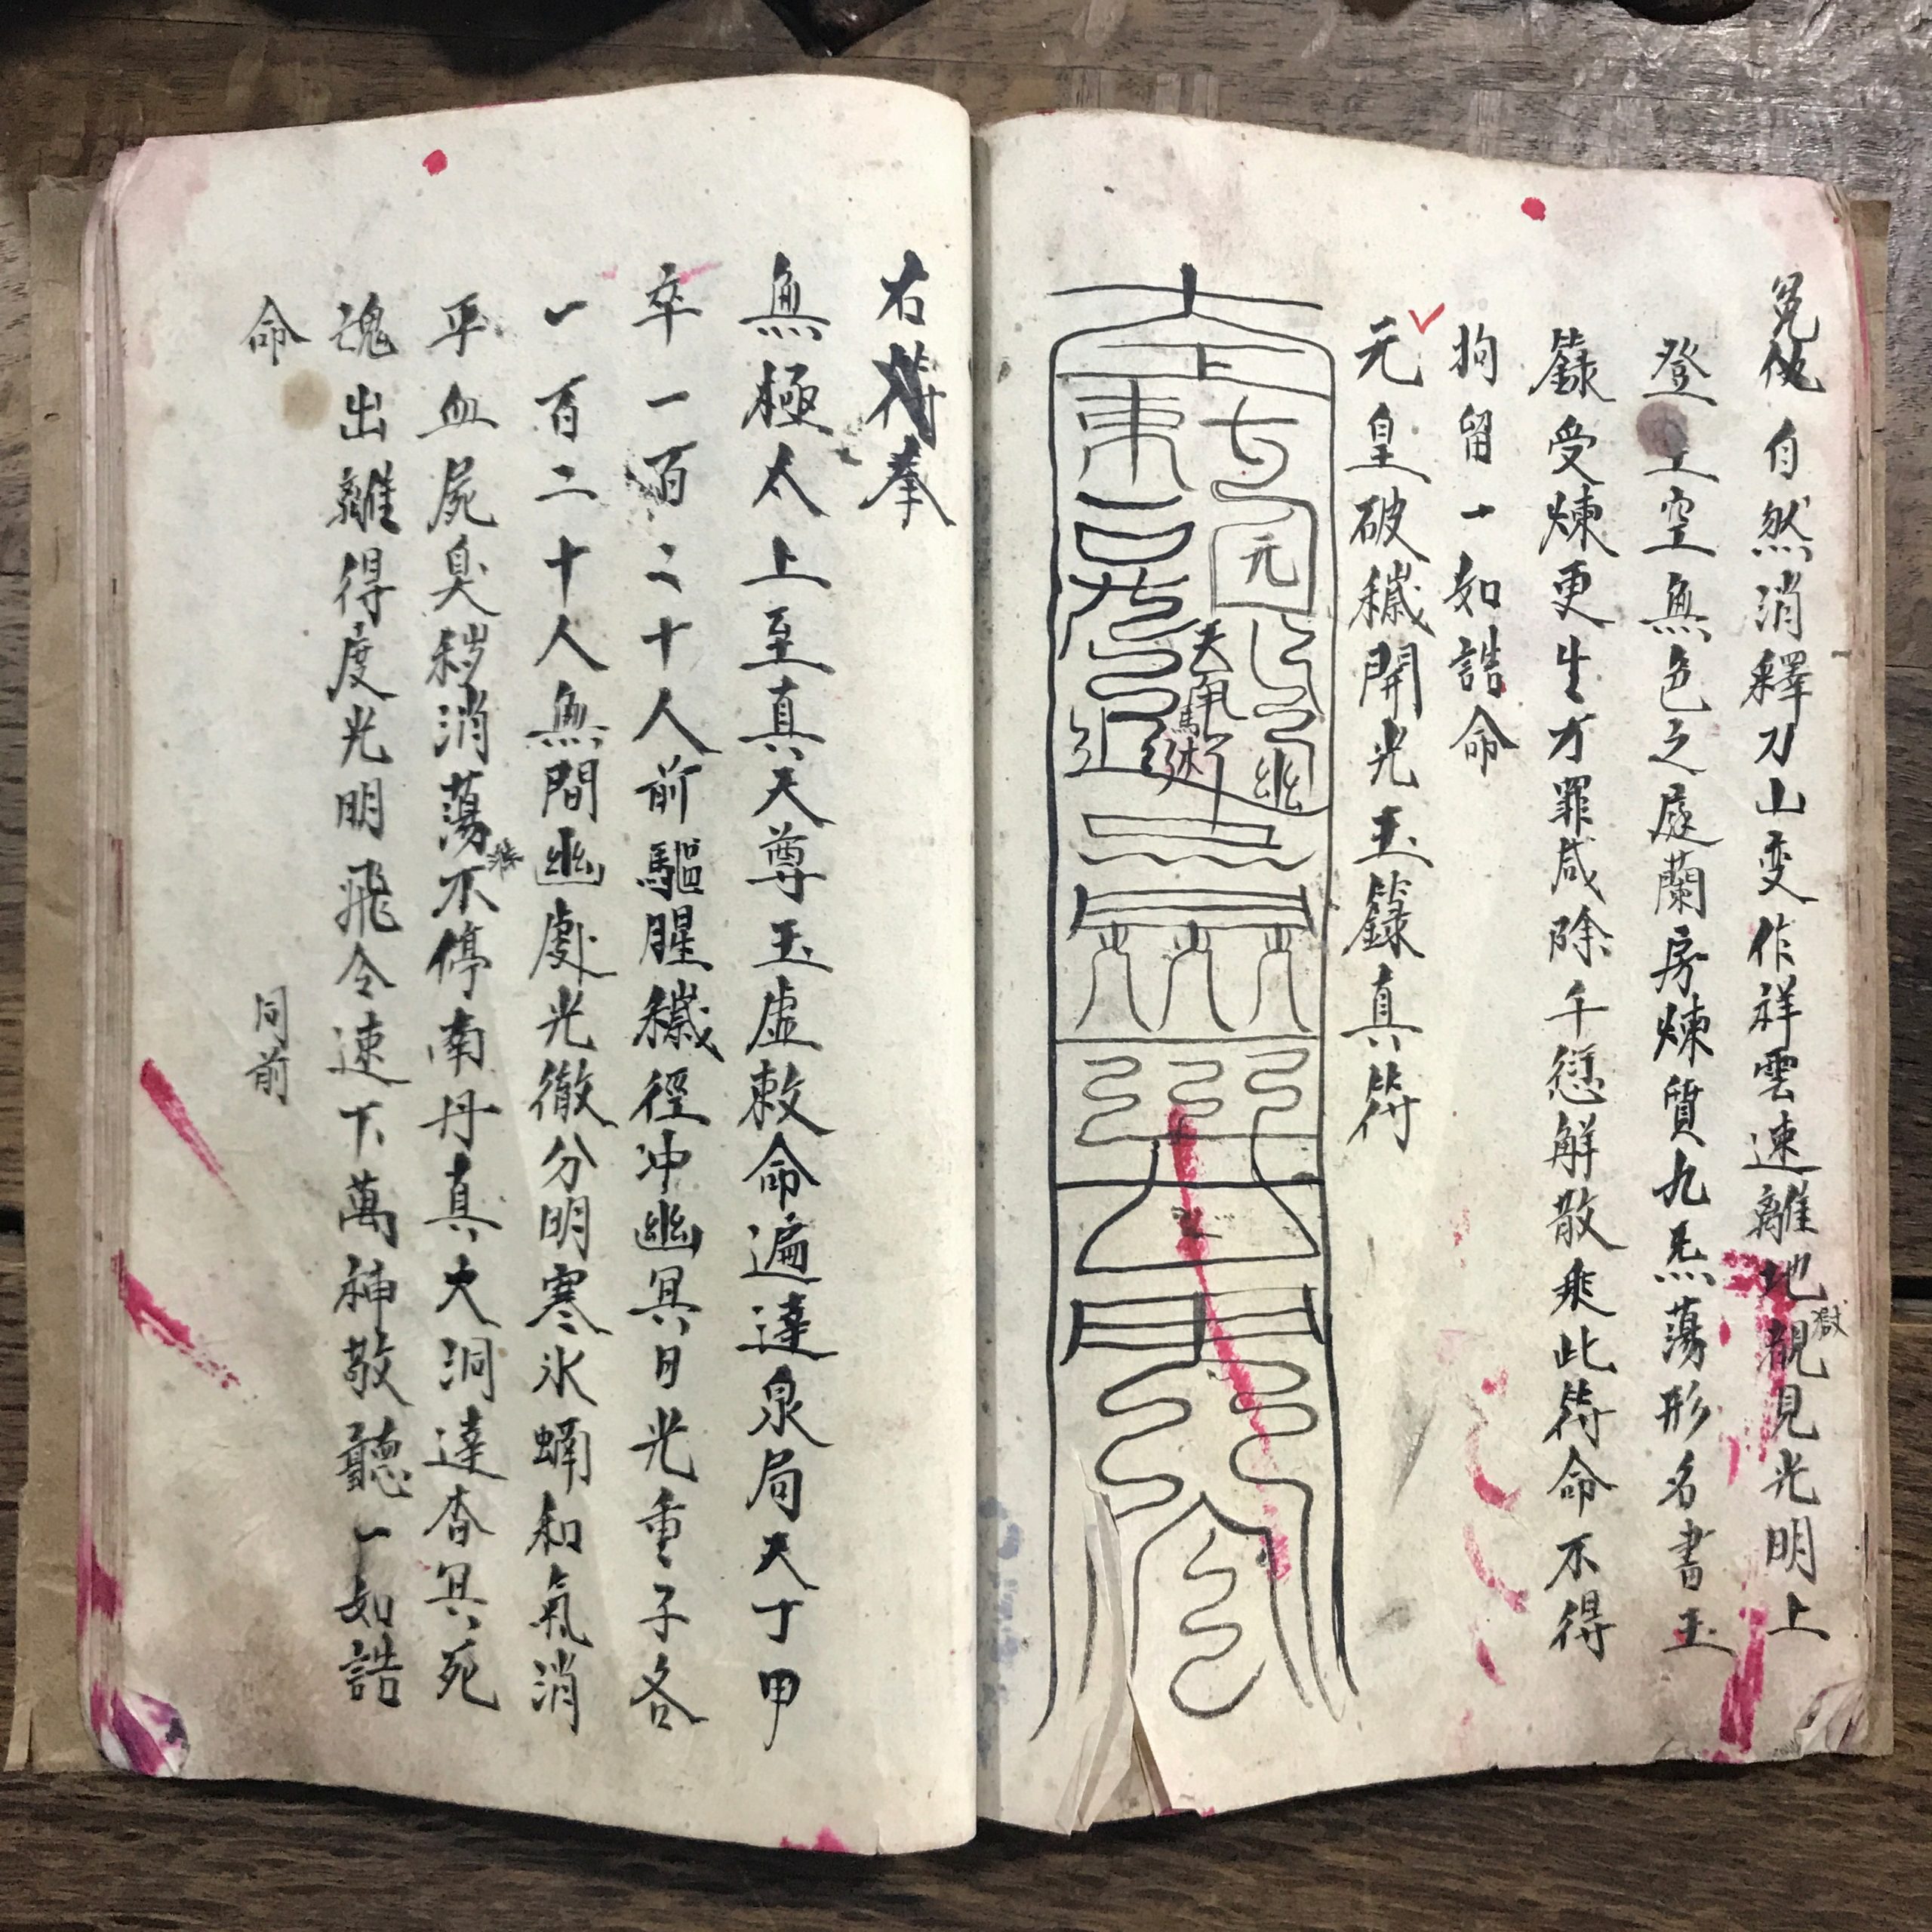 冤仇自然消釋刀山变作祥雲速離地獄覩見光明上
登上空無色之庭蘭房煉質九炁蕩形名書玉
籙受煉更生才罪咸除千愆解散乘此符命不得
拘留一如誥命
元皇破穢開光玉籙真符
元
右符奉
無極太上至真天尊玉虛敕命遍達泉局天丁甲
卒一百二十人前驅腥穢徑冲幽冥日光重子各
一百二十人無間幽處光徹分明寒氷蝸和氣消
平血屍臭穢消蕩不停南丹真火洞達杳冥死
魂出離得度光明飛令速下萬神敬聽一如誥
命
同前